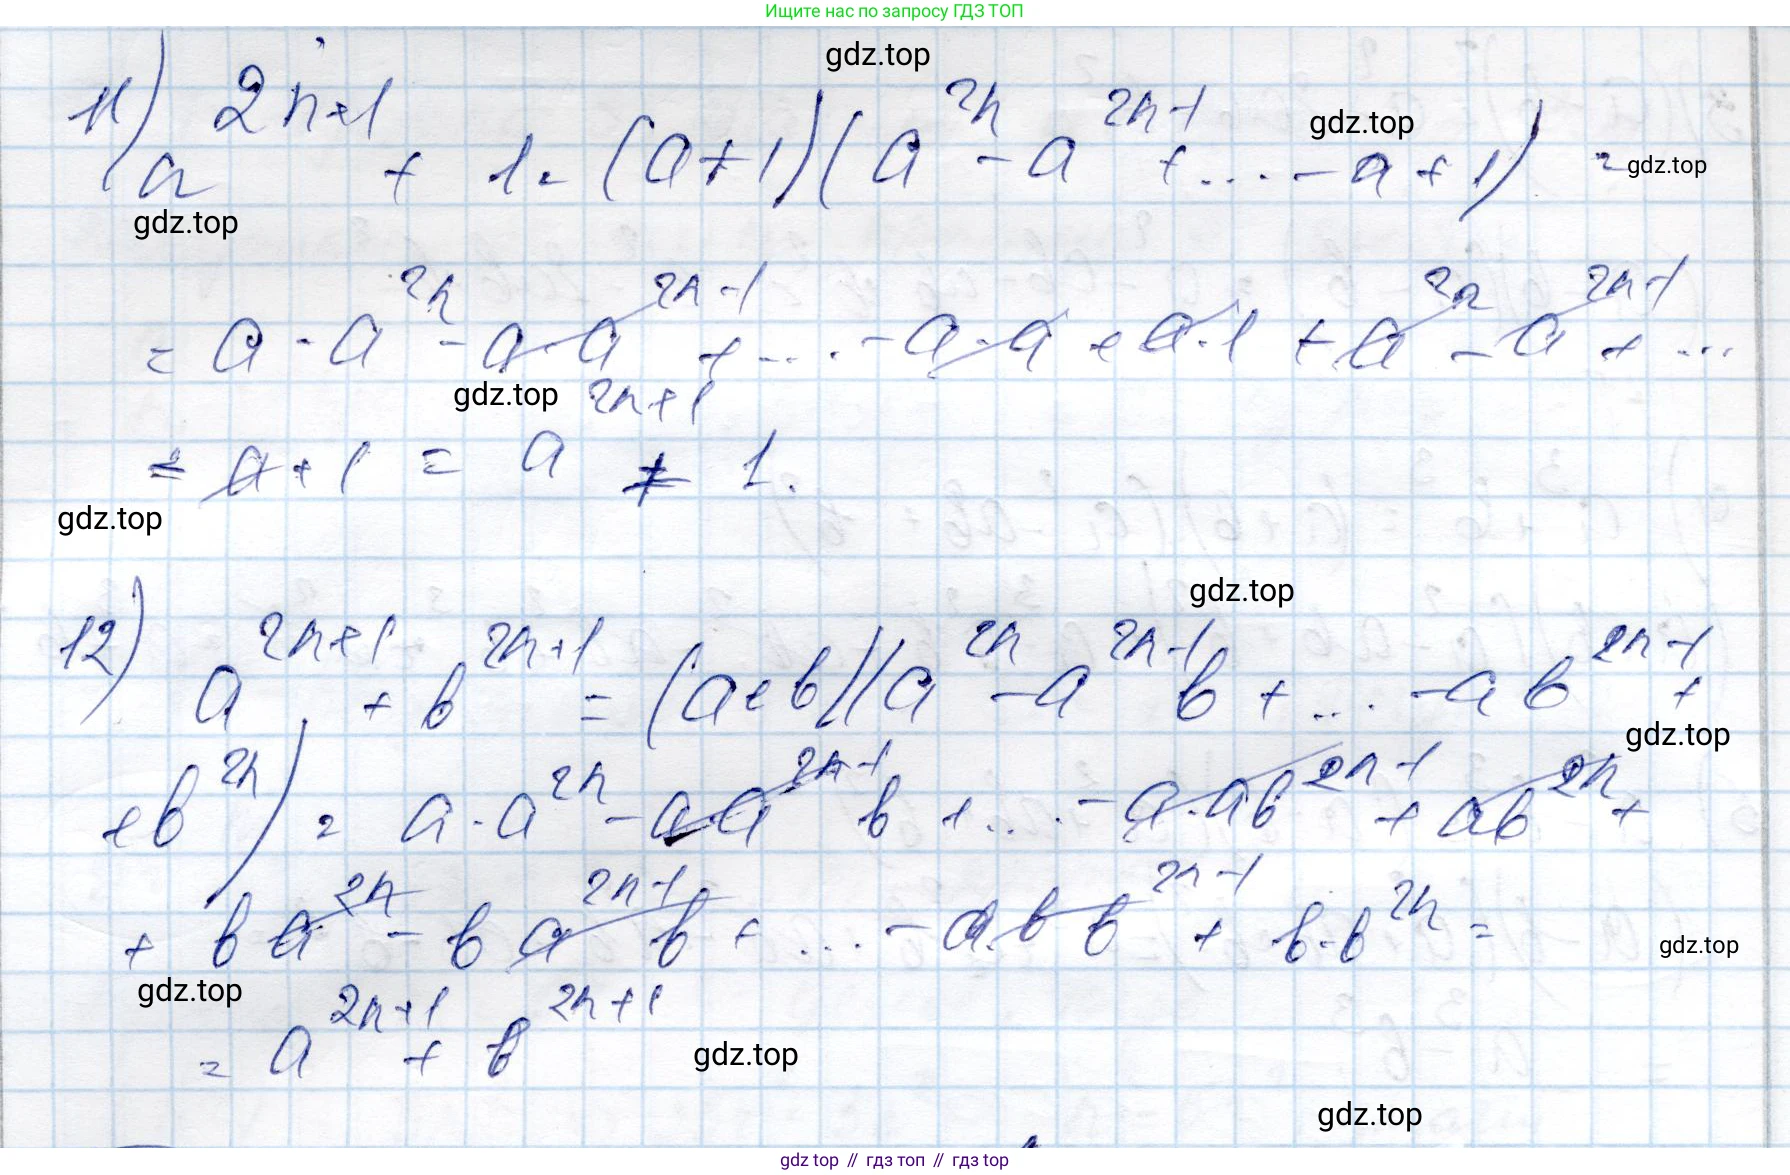 Ищите нас по запросу ГДЗ ТОП
gdz.top
11) a^{2n+1} + 1 = (a+1)(a^{2n} - a^{2n-1} + ... - a + 1) =
gdz.top
gdz.top
gdz.top
= a · a^{2n} - a · a^{2n-1} + ... - a · a + a · 1 + a^{2n} - a^{2n-1} + ...
gdz.top
= a + 1 = a^{2n+1} + 1.
gdz.top
gdz.top
12) a^{2n+1} + b^{2n+1} = (a+b)(a^{2n} - a^{2n-1}b + ... - ab^{2n-1} +
gdz.top
+ b^{2n}) = a · a^{2n} - a a^{2n-1} b + ... - a · ab^{2n-1} + ab^{2n} +
+ b a^{2n} - b a^{2n-1} b + ... - a · b b^{2n-1} + b · b^{2n} =
gdz.top
gdz.top
= a^{2n+1} + b^{2n+1}
gdz.top
gdz.top
gdz top // гдз топ // гдз top